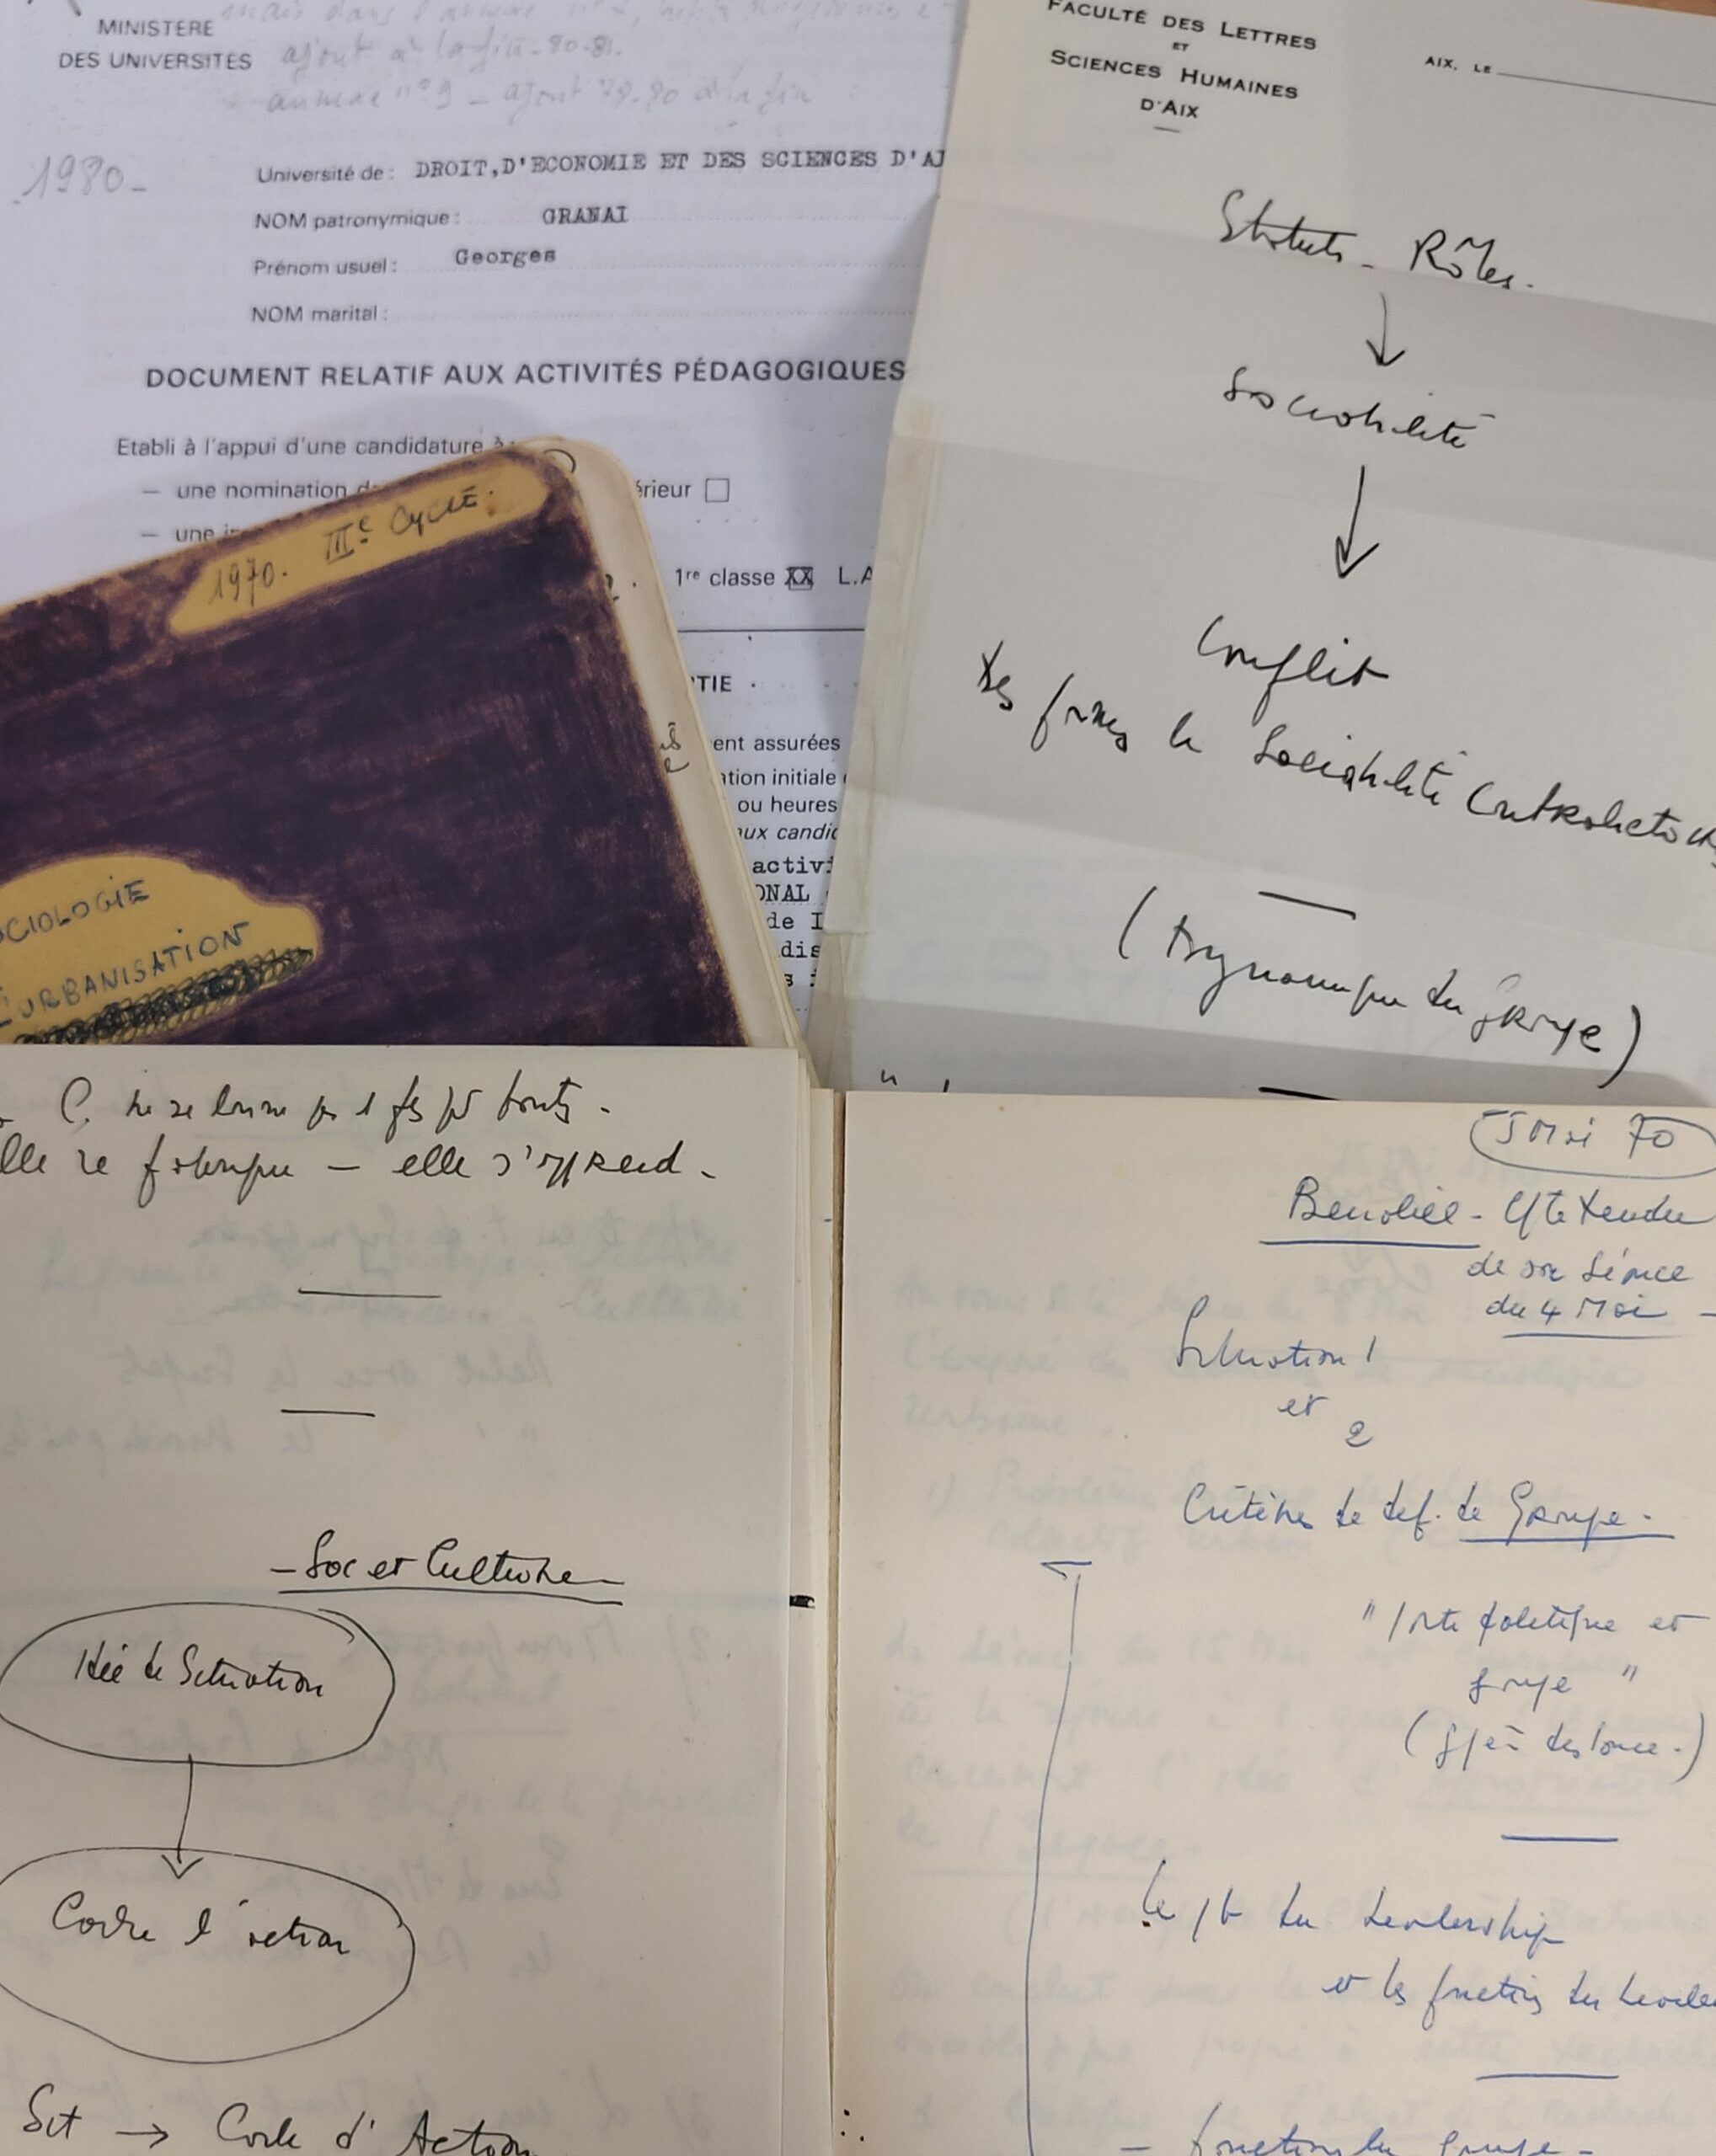 MINISTERE
DES UNIVERSITES
ajout à la fin - 80-81.
annexe n° 9 - ajout 79-80 à la fin
1980-
Université de : DROIT,D'ECONOMIE ET DES SCIENCES D'A
NOM patronymique : GRANAI
Prénom usuel : Georges
NOM marital :
DOCUMENT RELATIF AUX ACTIVITÉS PÉDAGOGIQUES
Etabli à l'appui d'une candidature à
— une nomination
érieur
— une
1re classe XX L.A
TIE
ent assurées
ation initiale
ou heures
aux candid
activi
ONAL
de I
dis
FACULTÉ DES LETTRES
ET
SCIENCES HUMAINES
D'AIX
AIX, LE
Statuts - Rôles.
↓
Sociabilité
↓
Conflit
Les formes de Sociabilité Contradictoires
(Dynamique du groupe)
1970. IIIe Cycle.
OCIOLOGIE
URBANISATION
elle se fabrique — elle s'apprend -
- Soc et Culture -
Idée de Situation
↓
Cadre d'action
Sit → Cadre d'Action
5 Mai 70
Benoliel - Cpte rendu
de sa séance
du 4 Mai -
Situation 1
et
2
Critères de def. de Groupe -
politique et
groupe "
Le pb du leadership
et les fonctions du leader
- fonction du groupe -